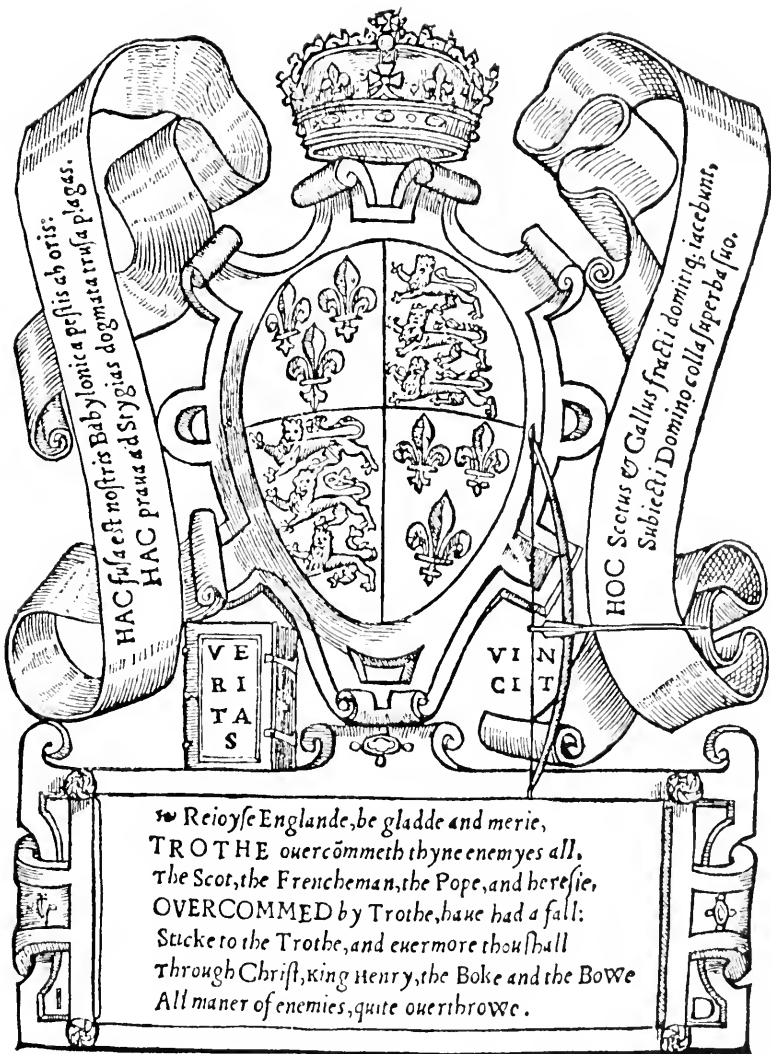 HAC fuſa est noſtris Babylonica peſtis ab oris:
HAC praua ad Stygias dogmata truſa plagas.
HOC Scotus & Gallus fracti dominiq; iacebunt,
Subiecti Domino colla ſuperba ſuo.
VE
RI
TA
S
VIN
CIT
Reioyſe Englande, be gladde and merie,
TROTHE ouercōmeth thyne enemyes all,
The Scot, the Frencheman, the Pope, and hereſie,
OVERCOMMED by Trothe, haue had a fall:
Sticke to the Trothe, and euermore thou ſhall
Through Chriſt, King Henry, the Boke and the Bowe
All maner of enemies, quite ouerthrowe.
I D